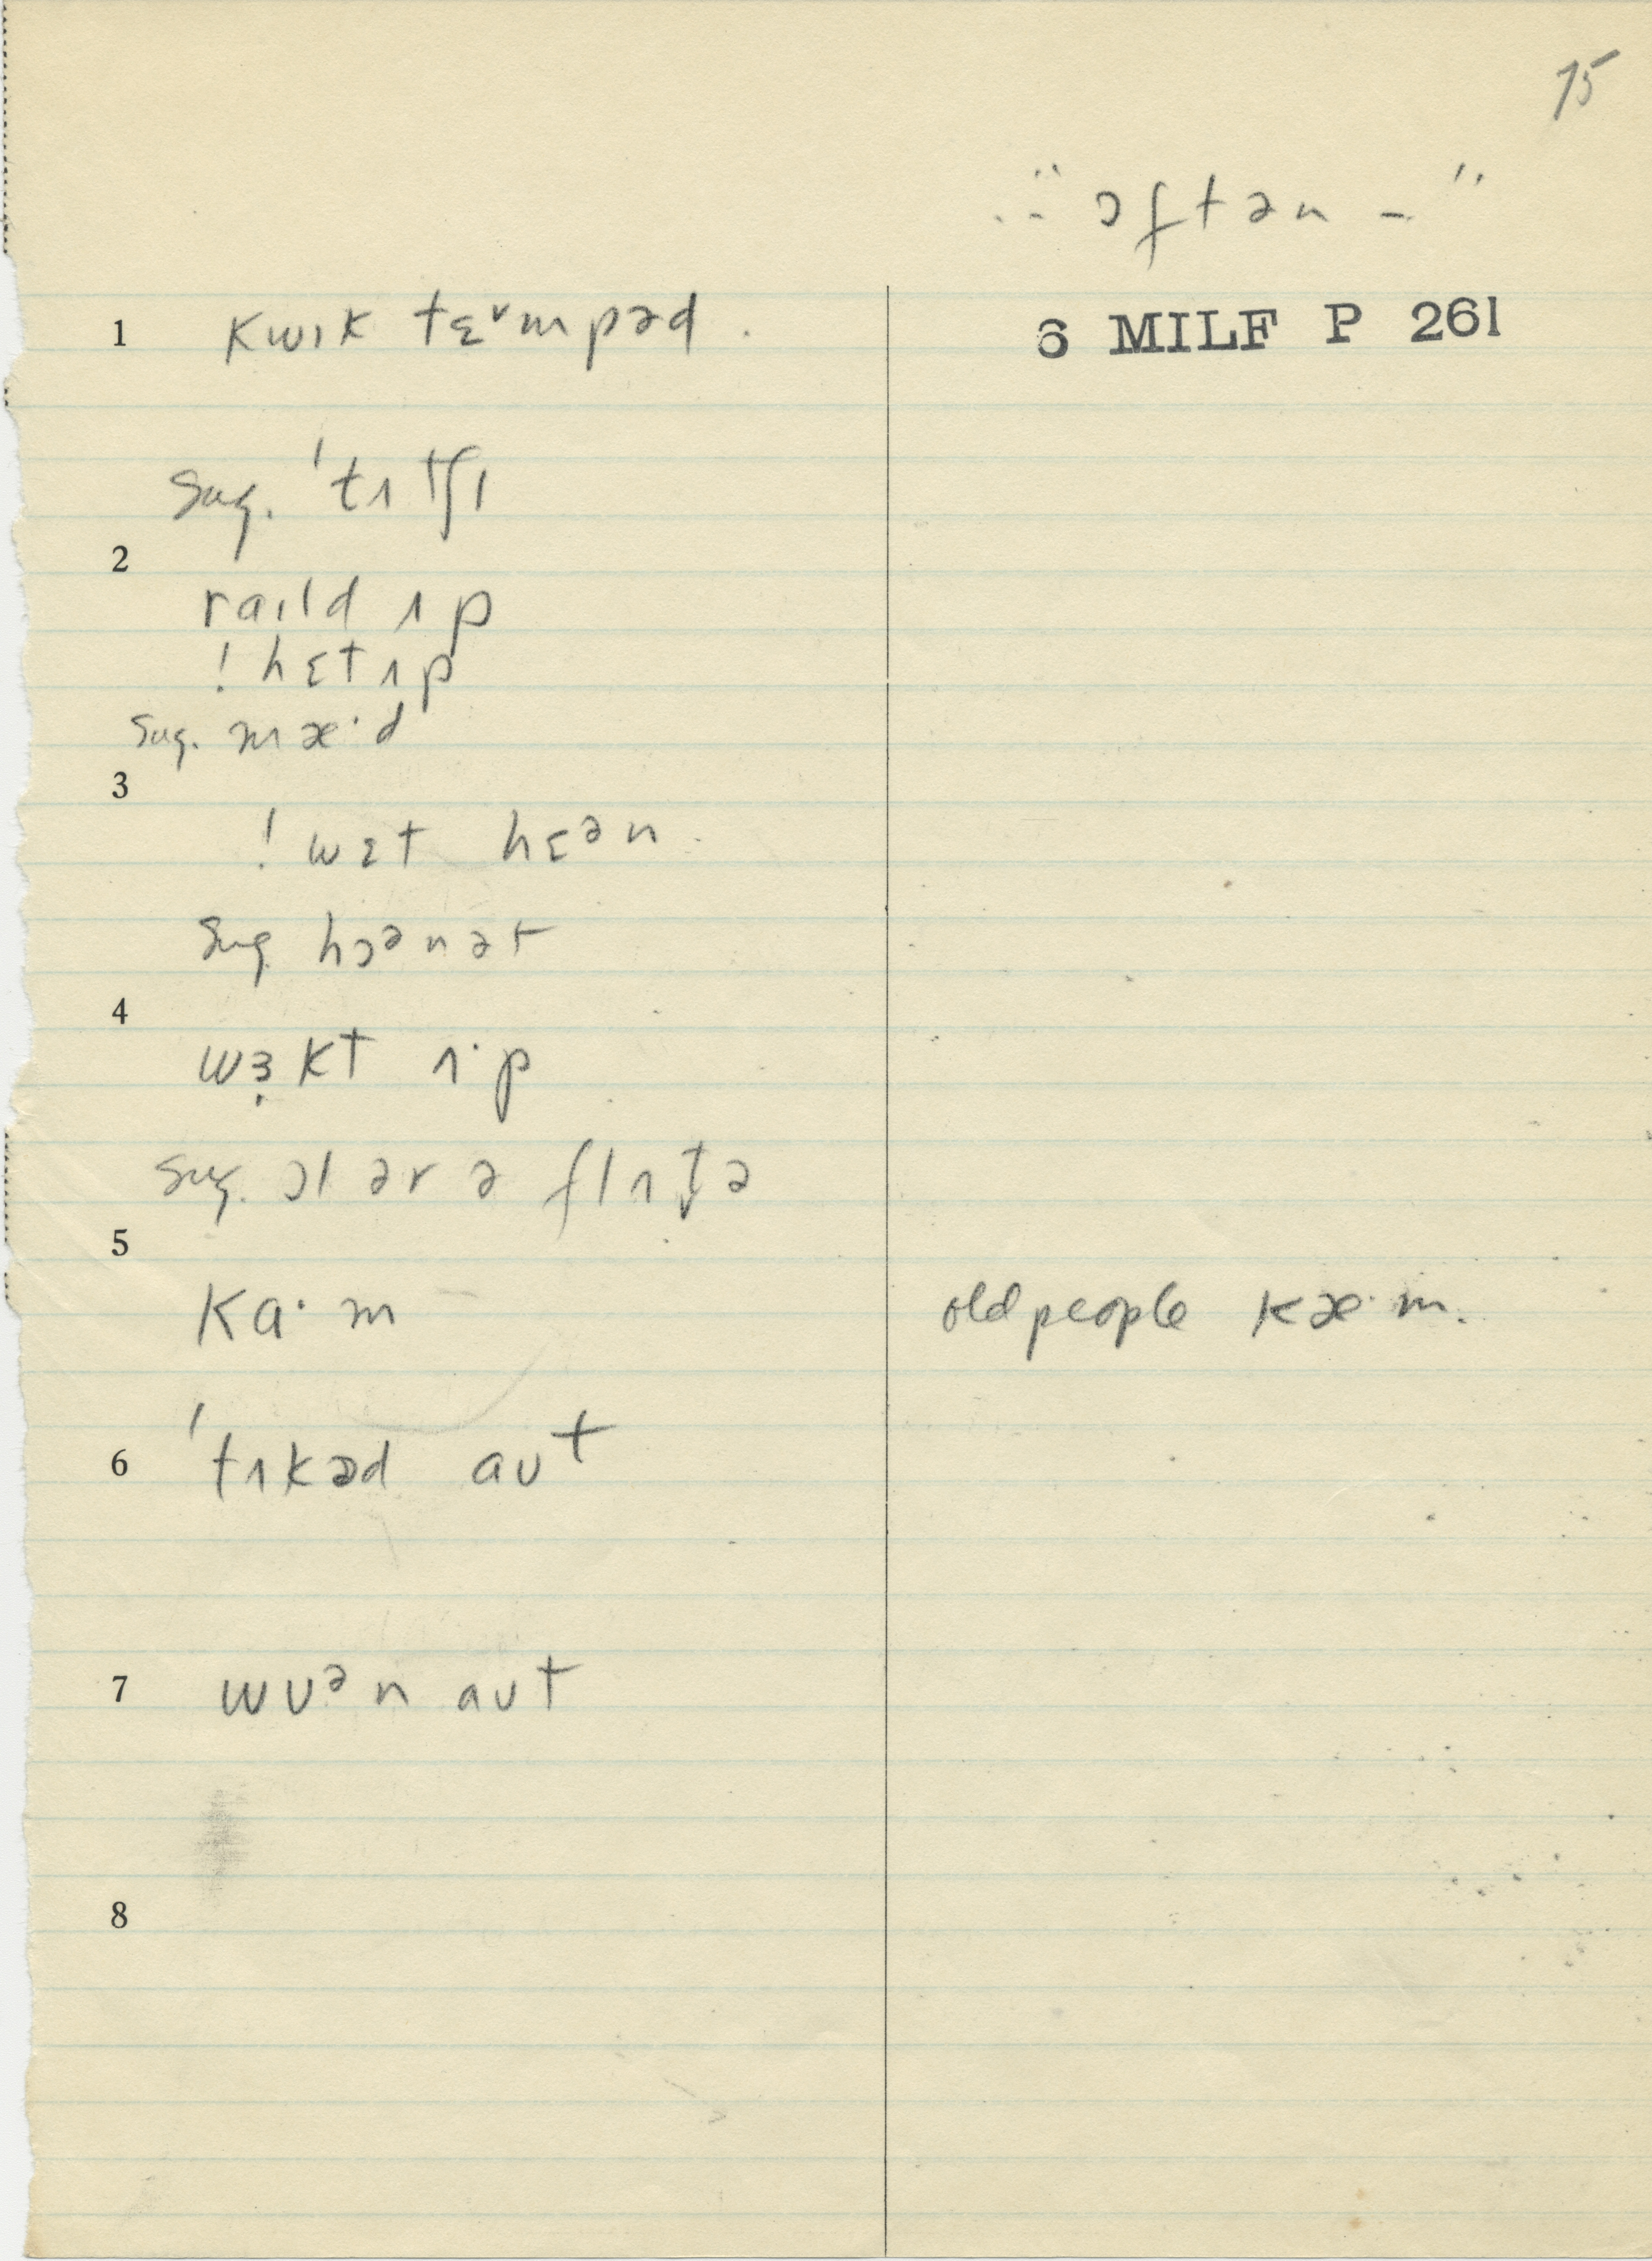 75
"– ɔftən –"
1 kwɪk tɛᵛmpəd. 6 MILF P 261
sug. 'tɪtʃɪ
2
raɪld ɪp
! hɛtɪp
sug. mæ·d
3
! wɛt hɛᵊn.
sug. hɔᵊnət
4
wɜ̣kt ɪ·p
sug. ɔl ər ə flɪt̬ə
5
ka·m old people kæ·m.
6 'tɪkəd aʊt
7 wʊᵊn aʊt
8